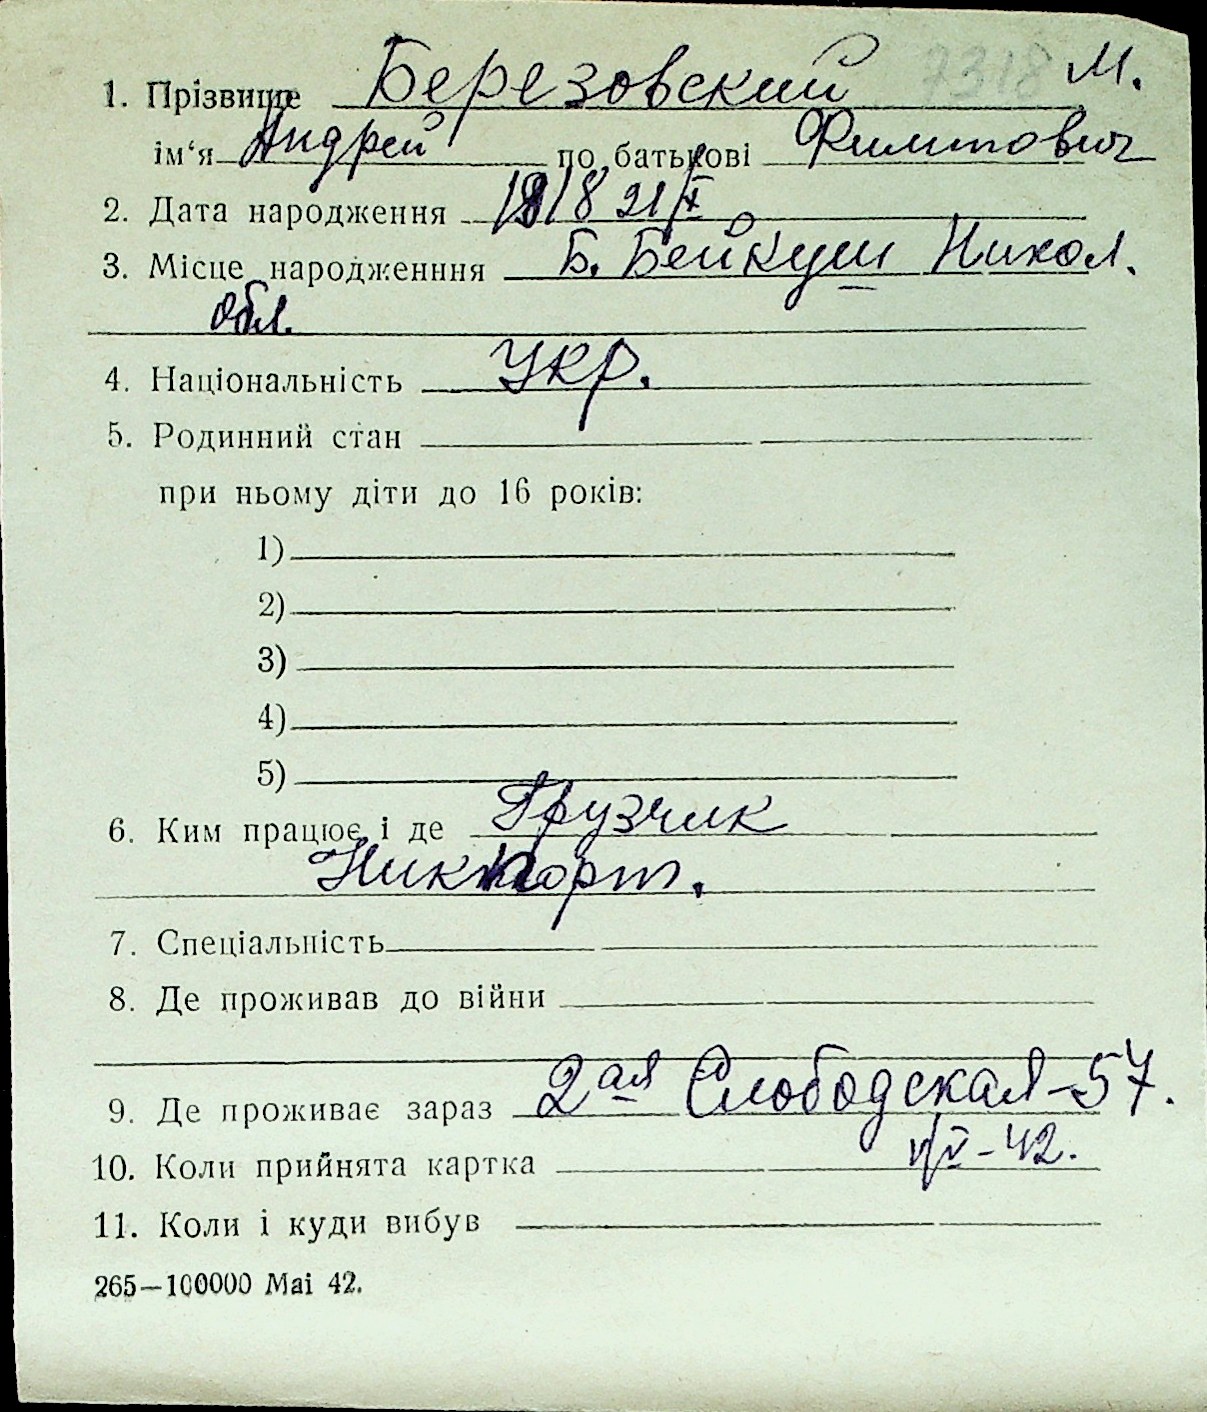 7318 М.
1. Прізвище Березовский
ім‘я Андрей по батькові Филитович
2. Дата народження 1918 21/X
3. Місце народженння Б. Бейкуш Никол.
обл.
4. Національність Укр.
5. Родинний стан
при ньому діти до 16 років:
1)
2)
3)
4)
5)
6. Ким працює і де Грузчик
Никпорт.
7. Спеціальність
8. Де проживав до війни
9. Де проживає зараз 2ая Слободская-57.
10. Коли прийнята картка V-42.
11. Коли і куди вибув
265—100000 Mai 42.